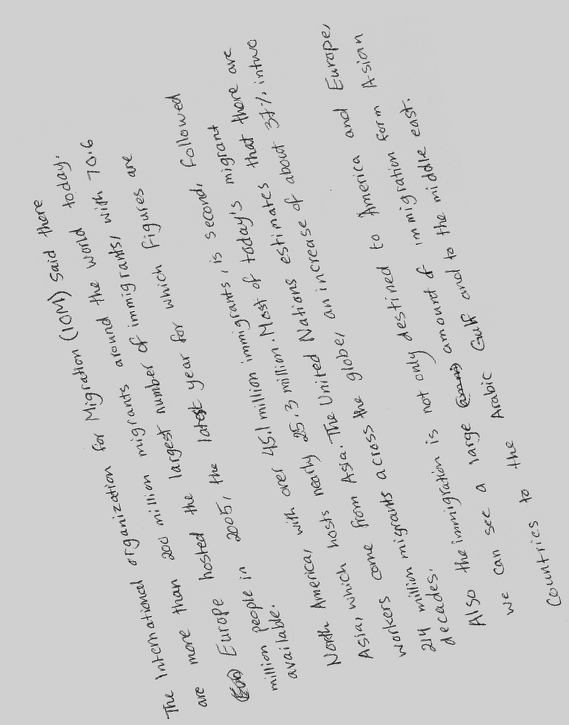 The International organization for Migration (IOM) Said there
are more than 200 million migrants around the world today.
Europe hosted the largest number of immigrants, with 70.6
million people in 2005, the latest year for which figures are
available.
North America, with over 45.1 million immigrants, is second, followed
Asia, which hosts nearly 25.3 million. Most of today's migrant
workers come from Asia. The United Nations estimates that there are
214 million migrants across the globe, an increase of about 37% intwo
decades.
Also the immigration is not only destined to America and Europe,
we can see a large amount of immigration form Asian
Countries to the Arabic Gulf and to the middle east.